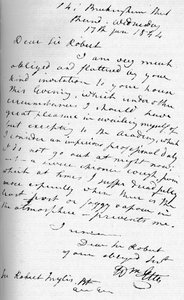 14, Buckingham Street
Strand. Wednesday
17th Jan 1854
Dear Sir Robert
I am very much
obliged and flattered by your
kind invitation to your house
this Evening, which under other
circumstances I should have
great pleasure in availing myself of
but excepting to the Academy, which
I consider an imperious professional duty
I do not go out at night
a severe chronic cough from
which at times I suffer dreadfully
more especially when there is the
least frost or foggy vapour in
the atmosphere - prevents me.
I remain
Dear Sir Robert
your obliged Servt
Wm Etty
Sir Robert Inglis, Bt